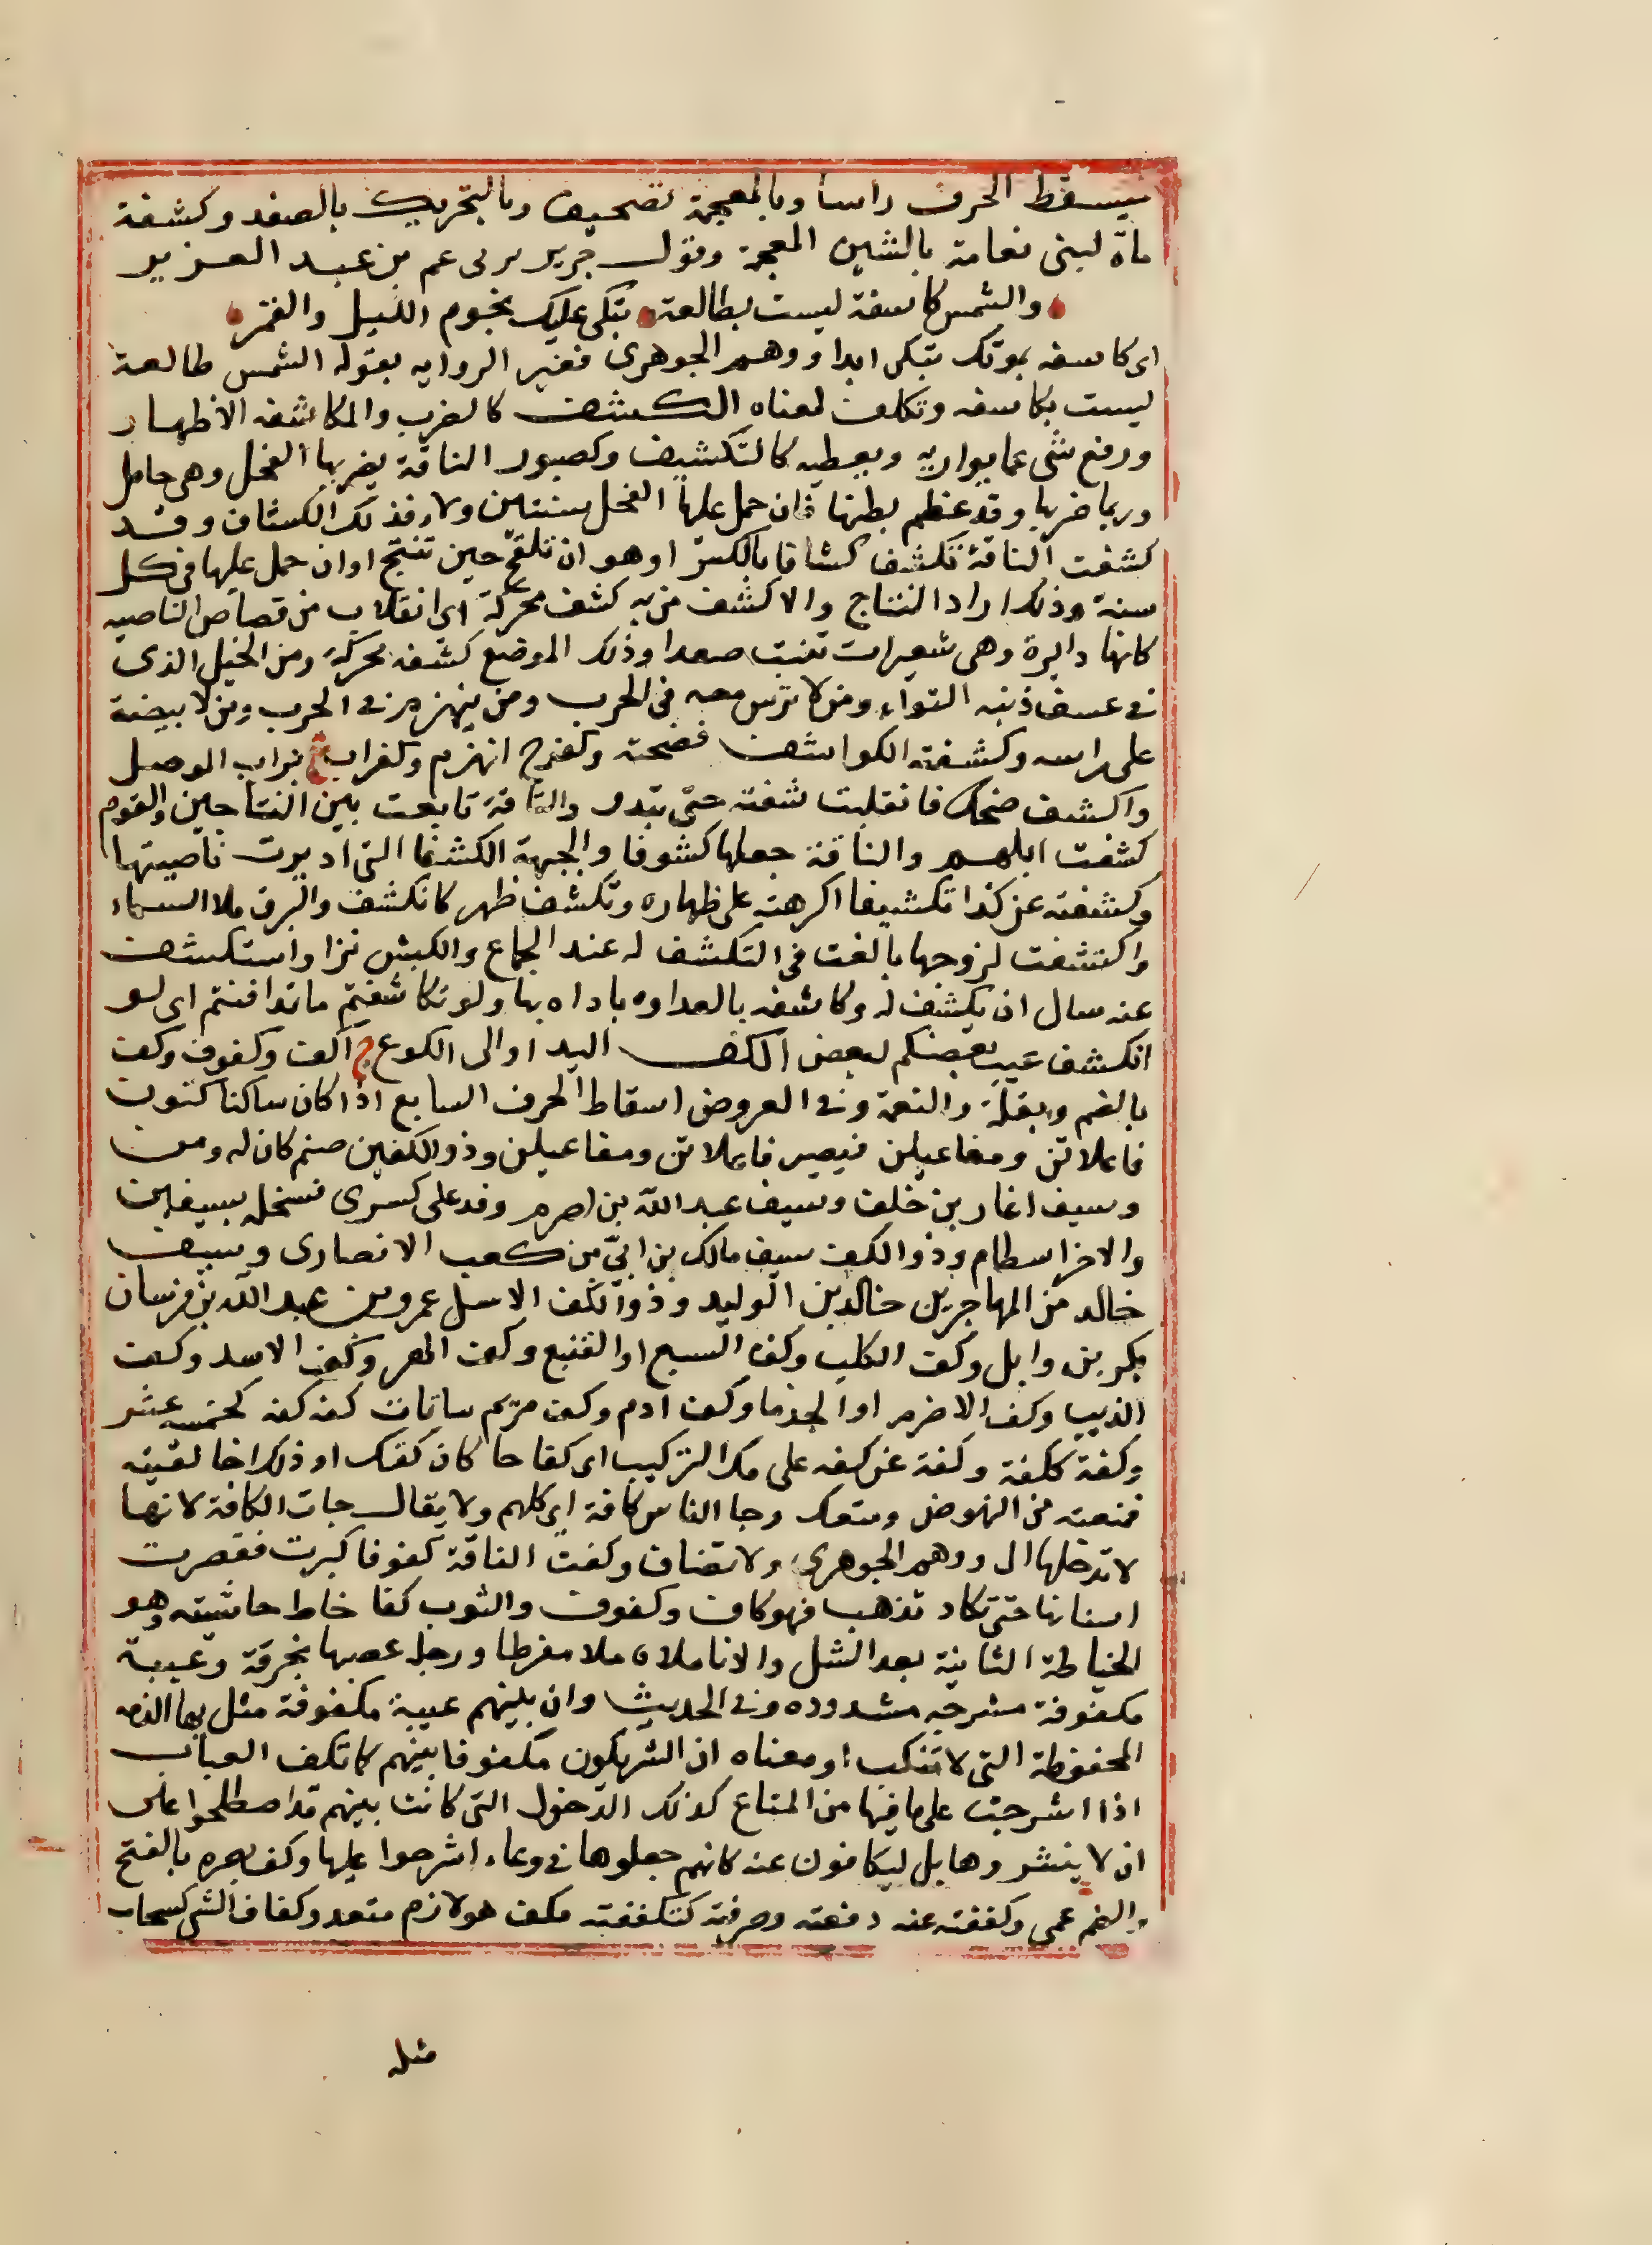 فيسقط الحرف راسا وبالمعجمة تصحيف وبالتحريك بالصغد وكشفة
ماة لبنى نعامة بالشين المعجمة وقول جرير يرثى عمر بن عبد العزيز
والشمس كاسفة ليست بطالعة تبكى عليك نجوم الليل والقمر
اى كاسفه بموتك تبكى ابدا ووهم الجوهرى فغير الروايه بقوله الشمس طالعة
ليست بكاسفه وتكلف لمعناه الكشف كالضرب والمكاشفه الاظهار
ورفع شى عما يواريه ويغطيه كالتكشيف وكصبور الناقة يضربها الفحل وهى حامل
وربما ضربها وقد عظم بطنها فان حمل عليها الفحل سنتين ولاء فذلك الكشاف وقد
كشفت الناقة تكشف كشافا بالكسر او هو ان تلقح حين تنتج او ان حمل عليها فى كل
سنة وذلك اردا النتاج والاكشف من به كشف محركة اى انقلاب من قصاص الناصيه
كانها دايرة وهى شعيرات تنبت صعدا وذلك الموضع كشفه محركة ومن الخيل الذى
فى عسف ذنبه التواء ومن لا ترس معه فى الحرب ومن ينهزم فى الحرب ومن لا بيضة
على راسه وكشفته الكواشف فضحته وكفرح انهزم وكغراب ع بزاب الموصل
واكشف ضحك فانقلبت شفته حتى تبدو والناقة تابعت بين النتاجين والقوم
كشفت ابلهم والناقة جعلها كشوفا والجبهة الكشفا التى ادبرت ناصيتها
وكشفته عن كذا تكشيفا اكرهته على اظهاره وتكشف ظهر كانكشف والبرق ملا السماء
واكتشفت لزوجها بالغت فى التكشف له عند الجماع والكبش نزا واستكشف
عنه سال ان يكشف له وكاشفه بالعداوه باداه بها ولو تكاشفتم ما تدافنتم اى لو
انكشف عيب بعضكم لبعض الكف اليد او الى الكوع ج اكف وكفوف وكف
بالضم وبقلة والنعمة وفى العروض اسقاط الحرف السابع اذا كان ساكنا كنون
فاعلاتن ومفاعيلن فيصير فاعلات ومفاعيل وذو الكفين صنم كان لدوس
وسيف انمار بن خلف وسيف عبد الله بن اصرم وفد على كسرى فسلحه بسيفين
والاخر اسطام وذو الكف سيف مالك بن ابى بن كعب الانصارى وسيف
خالد بن المهاجر بن خالد بن الوليد وذو الكف الاشل عمرو بن عبد الله من فرسان
بكر بن وايل وكف الكلب وكف السبع او الضبع وكف الهر وكف الاسد وكف
الذيب وكف الاجذم او الجذما وكف ادم وكف مريم نباتات كفه كفه كخمسه عشر
وكفة لكفة وكفة عن كفه على فك التركيب اى كفاحا كان كفك او ذلك اذا لقيته
فمنعته من النهوض ومنعك وجا الناس كافة اى كلهم ولا يقال جات الكافة لانها
لا تدخلها ال ووهم الجوهرى ولا تضاف وكفت الناقة كفوفا كبرت فقصرت
اسنانها حتى تكاد تذهب فهو كاف وكفوف والثوب كفا خاط حاشيته وهو
الخياطة الثانية بعد الشل والانا ملاه ملا مفرطا ورجله عصبها بخرقة وعيبة
مكفوفة مشرجه مشدوده وفى الحديث وان بينهم عيبة مكفوفة مثل بها الذمه
المحفوظة التى لا تنكب او معناه ان الشر يكون مكفوفا بينهم كما تكف العياب
اذا اشرجت على ما فيها من المتاع كذلك الذحول التى كانت بينهم قد اصطلحوا على
ان لا ينشروها بل يتكافون عنه كانهم جعلوها فى وعاء اشرجوا عليها وكف بصره بالفتح
والضم عمى وكففته عنه دفعته وصرفته ككفكفته فكف هو لازم متعد وكفاف الشى كسحاب
مثله